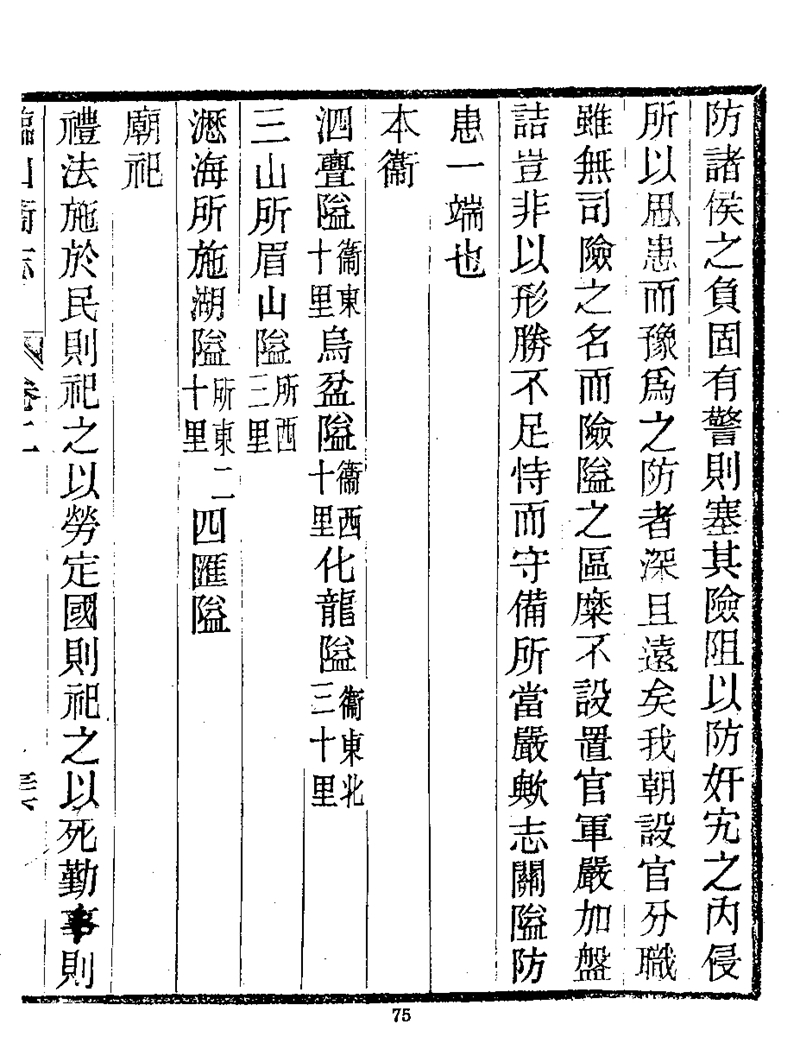 防諸侯之負固有警則塞其險阻以防奸宄之內侵
所以思患而豫爲之防者深且遠矣我朝設官分職
雖無司險之名而險隘之區糜不設置官軍嚴加盤
詰豈非以形勝不足恃而守備所當嚴歟志關隘防
患一端也
本衞
泗亹隘衞東十里烏盆隘衞西十里化龍隘衞東北三十里
三山所眉山隘所西三里
瀝海所施湖隘所東二十里四匯隘
廟祀
禮法施於民則祀之以勞定國則祀之以死勤事則
臨山衞志 卷二
75